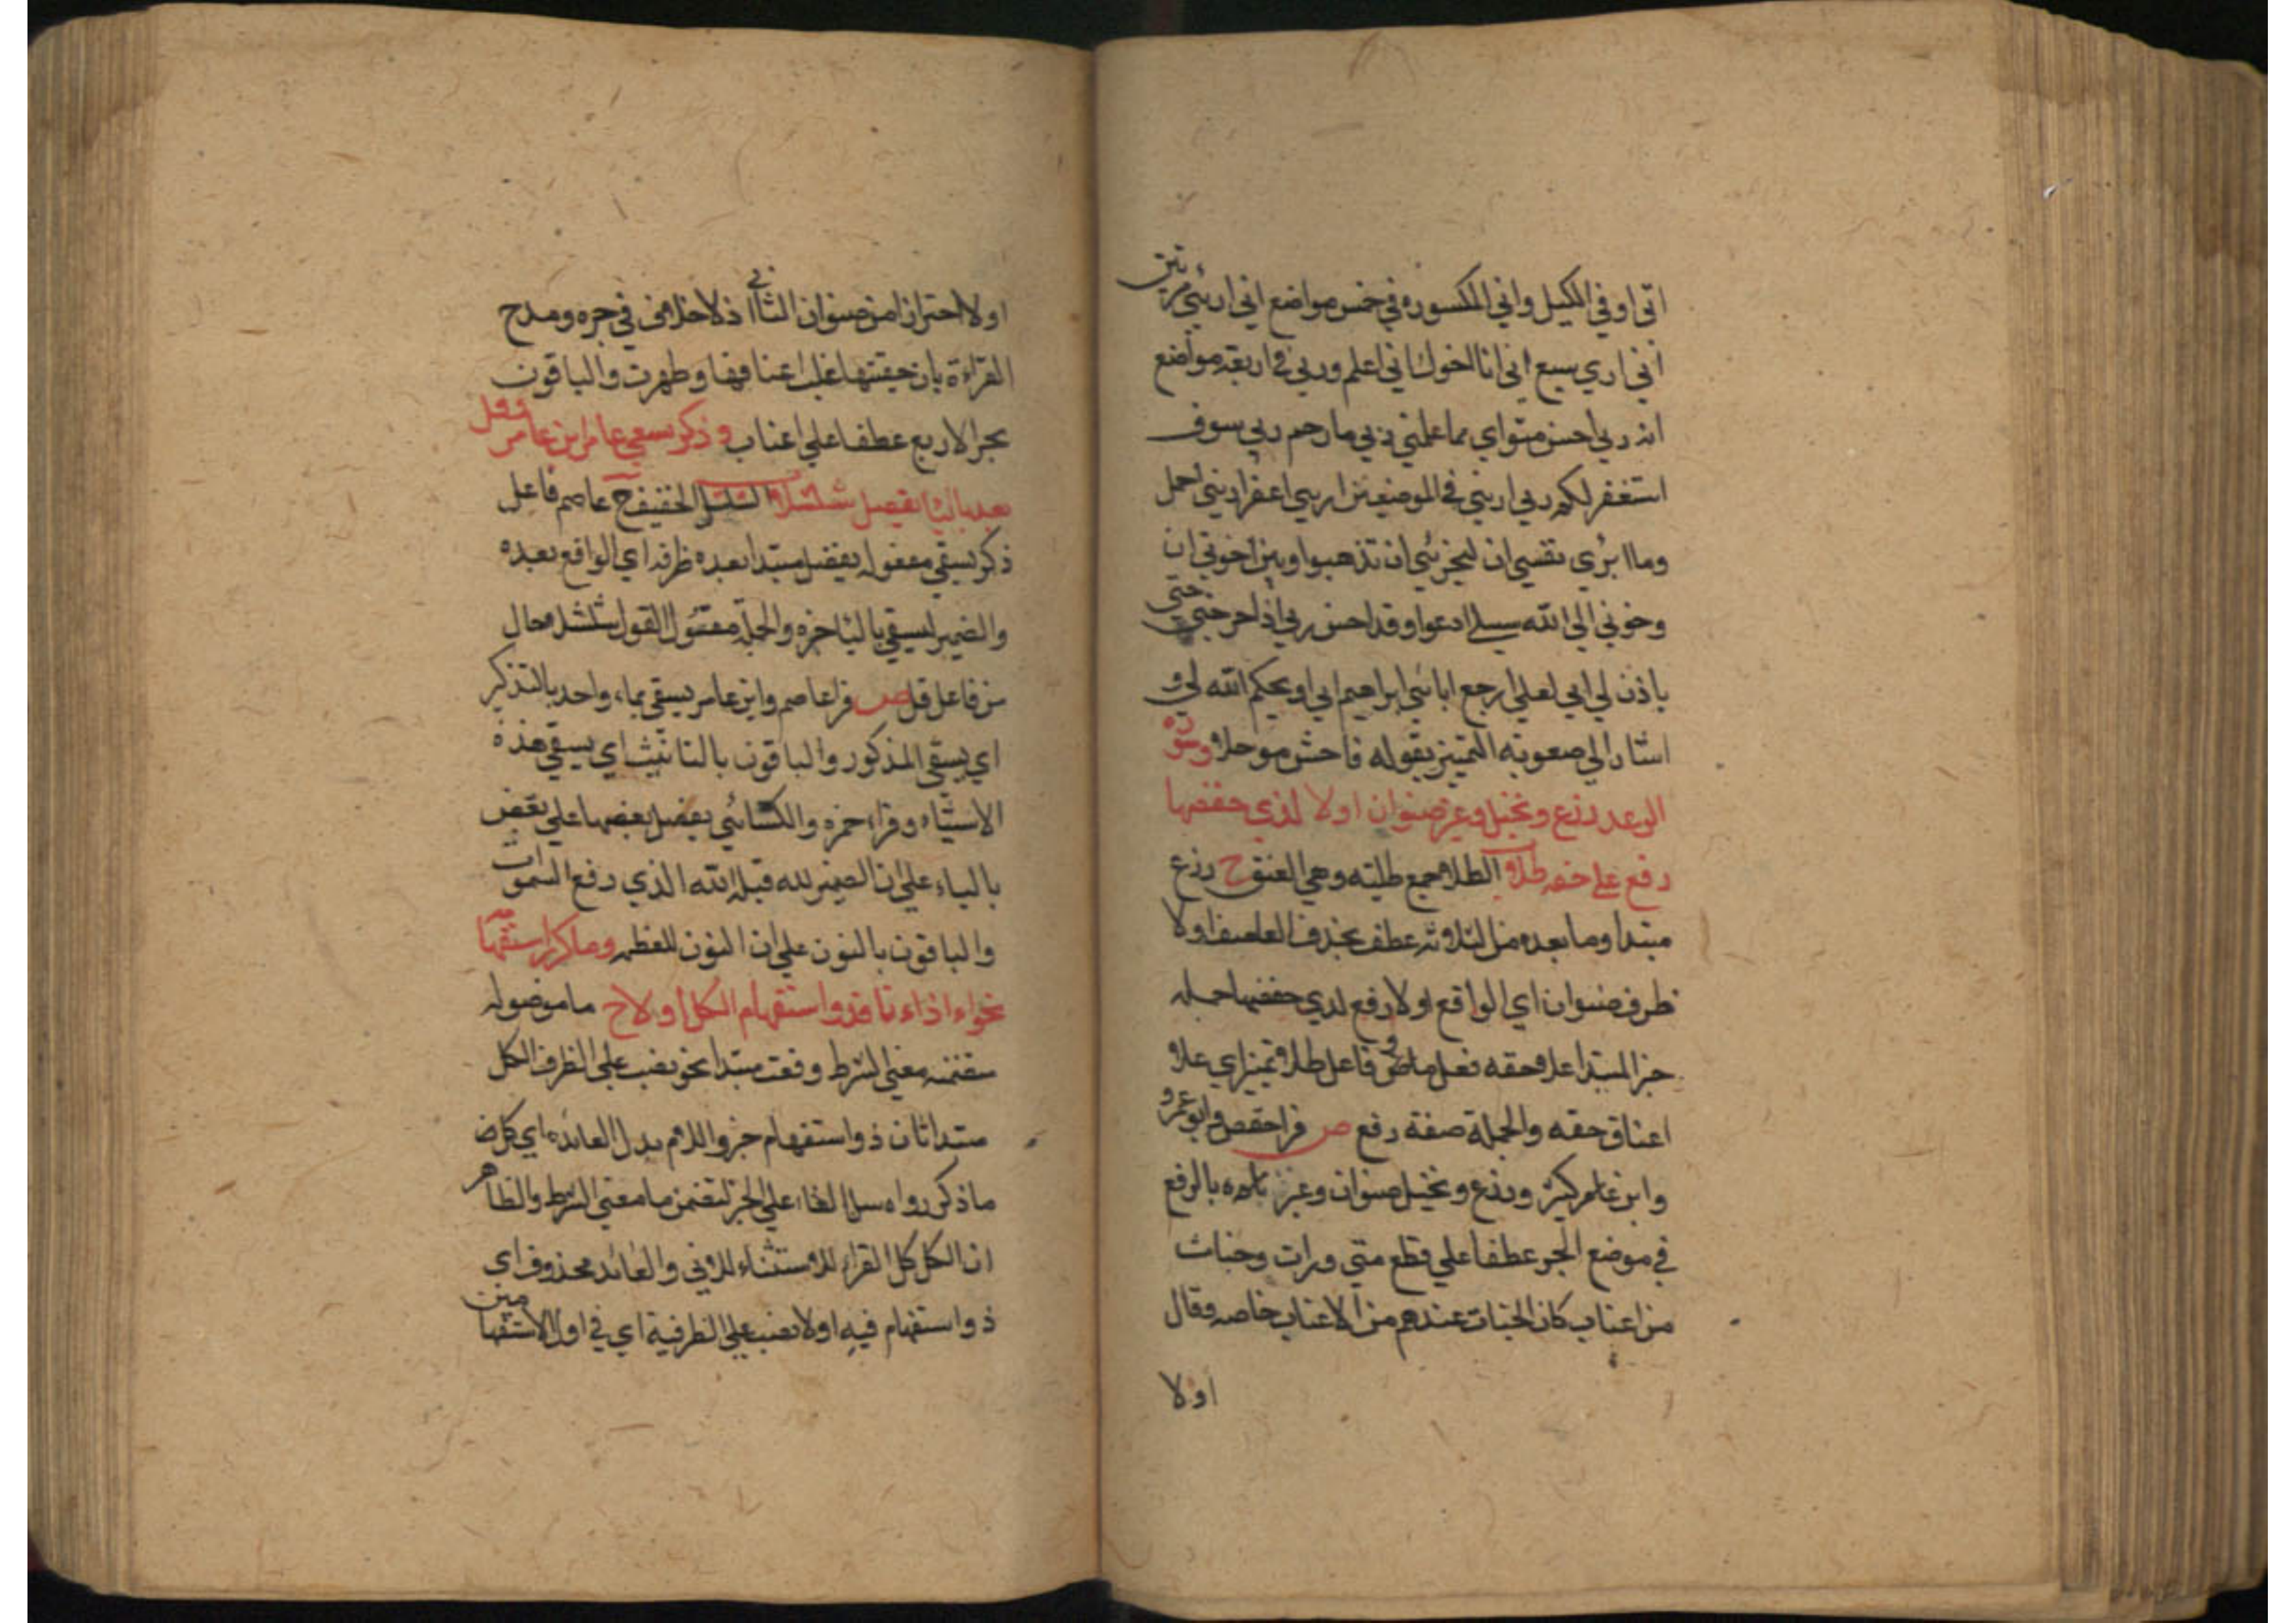 اني اوفي الكيل واني المكسوره في خمس مواضع اني اريني مرتين
اني اري سبع اني انا اخوك اني اعلم وربي في اربعة مواضع
انه ربي احسن مثواي مما علمني ربي ما رحم ربي سوف
استغفر لكم ربي اريني في الموضعين اريي اعصر اريني احمل
وما ابرئ نفسي ان ليحزنني ان تذهبوا وبين اخوتي ان
وحزني الي الله سبيلي ادعوا وقد احسن بي اذ اخرجني حتي
ياذن لي ابي لعلي ارجع ابائي ابراهيم ابي او يحكم الله لي و
اشار الي صعوبة التمييز بقوله فاحش موحلا وسورة
الرعد وزرع ونخيل وغير صنوان اولا لدي خفضها
رفع علي حقه طلا الطلا جمع طلية وهي العنق ح وزرع
مبتدا وما بعده من الثلاثة عطف بحذف العاطف اولا
ظرف صنوان اي الواقع اولا رفع لدي خفضها جمله
خبر المبتدا علا حقه فعل ماض و فاعل طلا تمييز اي علا
اعناق حقه والجملة صفة رفع ص قرا حفص وابو عمرو
وابن كثير وزرع ونخيل صنوان وغير بالرفع
في موضع الجر عطفا علي قطع متجاورات وجنات
من اعناب كان الجنات عندهم من الاعناب خاصه وقال
اولا
اولا احترازا من صنوان الثاني اذ لا خلاف في جره ومدح
القراءة بان حقيقتها غلب اعناقها وظهرت والباقون
بجر الاربع عطفا علي اعناب وذكر يسقي عاصم وابن عامر وقل
بعده باليا يفضل شلشلا الشلشل الخفيف ح عاصم فاعل
ذكر يسقي مفعوله يفضل مبتدا بعده ظرفه اي الواقع بعده
والضمير ليسقي باليا خبره والجملة مقول القول شلشلا حال
من فاعل قل ص قرا عاصم وابن عامر يسقي بماء واحد بالتذكير
اي يسقي المذكور والباقون بالتانيث اي يسقي هذه
الاشياء وقراء حمزه والكسائي يفضل بعضها علي بعض
بالياء علي ان الضمير لله قبله الله الذي رفع السموات
والباقون بالنون علي ان النون للعظمه وما كرر استفهامه
نحو ءاذا ءانا فذو استفهام الكل اولا ح ما موصوله
متضمنه معني الشرط وقعت مبتدا نحو نصب علي الظرف الكل
مبتدا ثان ذو استفهام خبر واللام بدل العائده اي كل
ما ذكروا علي الخبر لتضمن ما معني الشرط والظاهر
ان الكل كل القراء للاستثناء الاتي والعائد محذوف اي
ذو استفهام فيه اولا نصب علي الظرفية اي في اول الاستفهامين